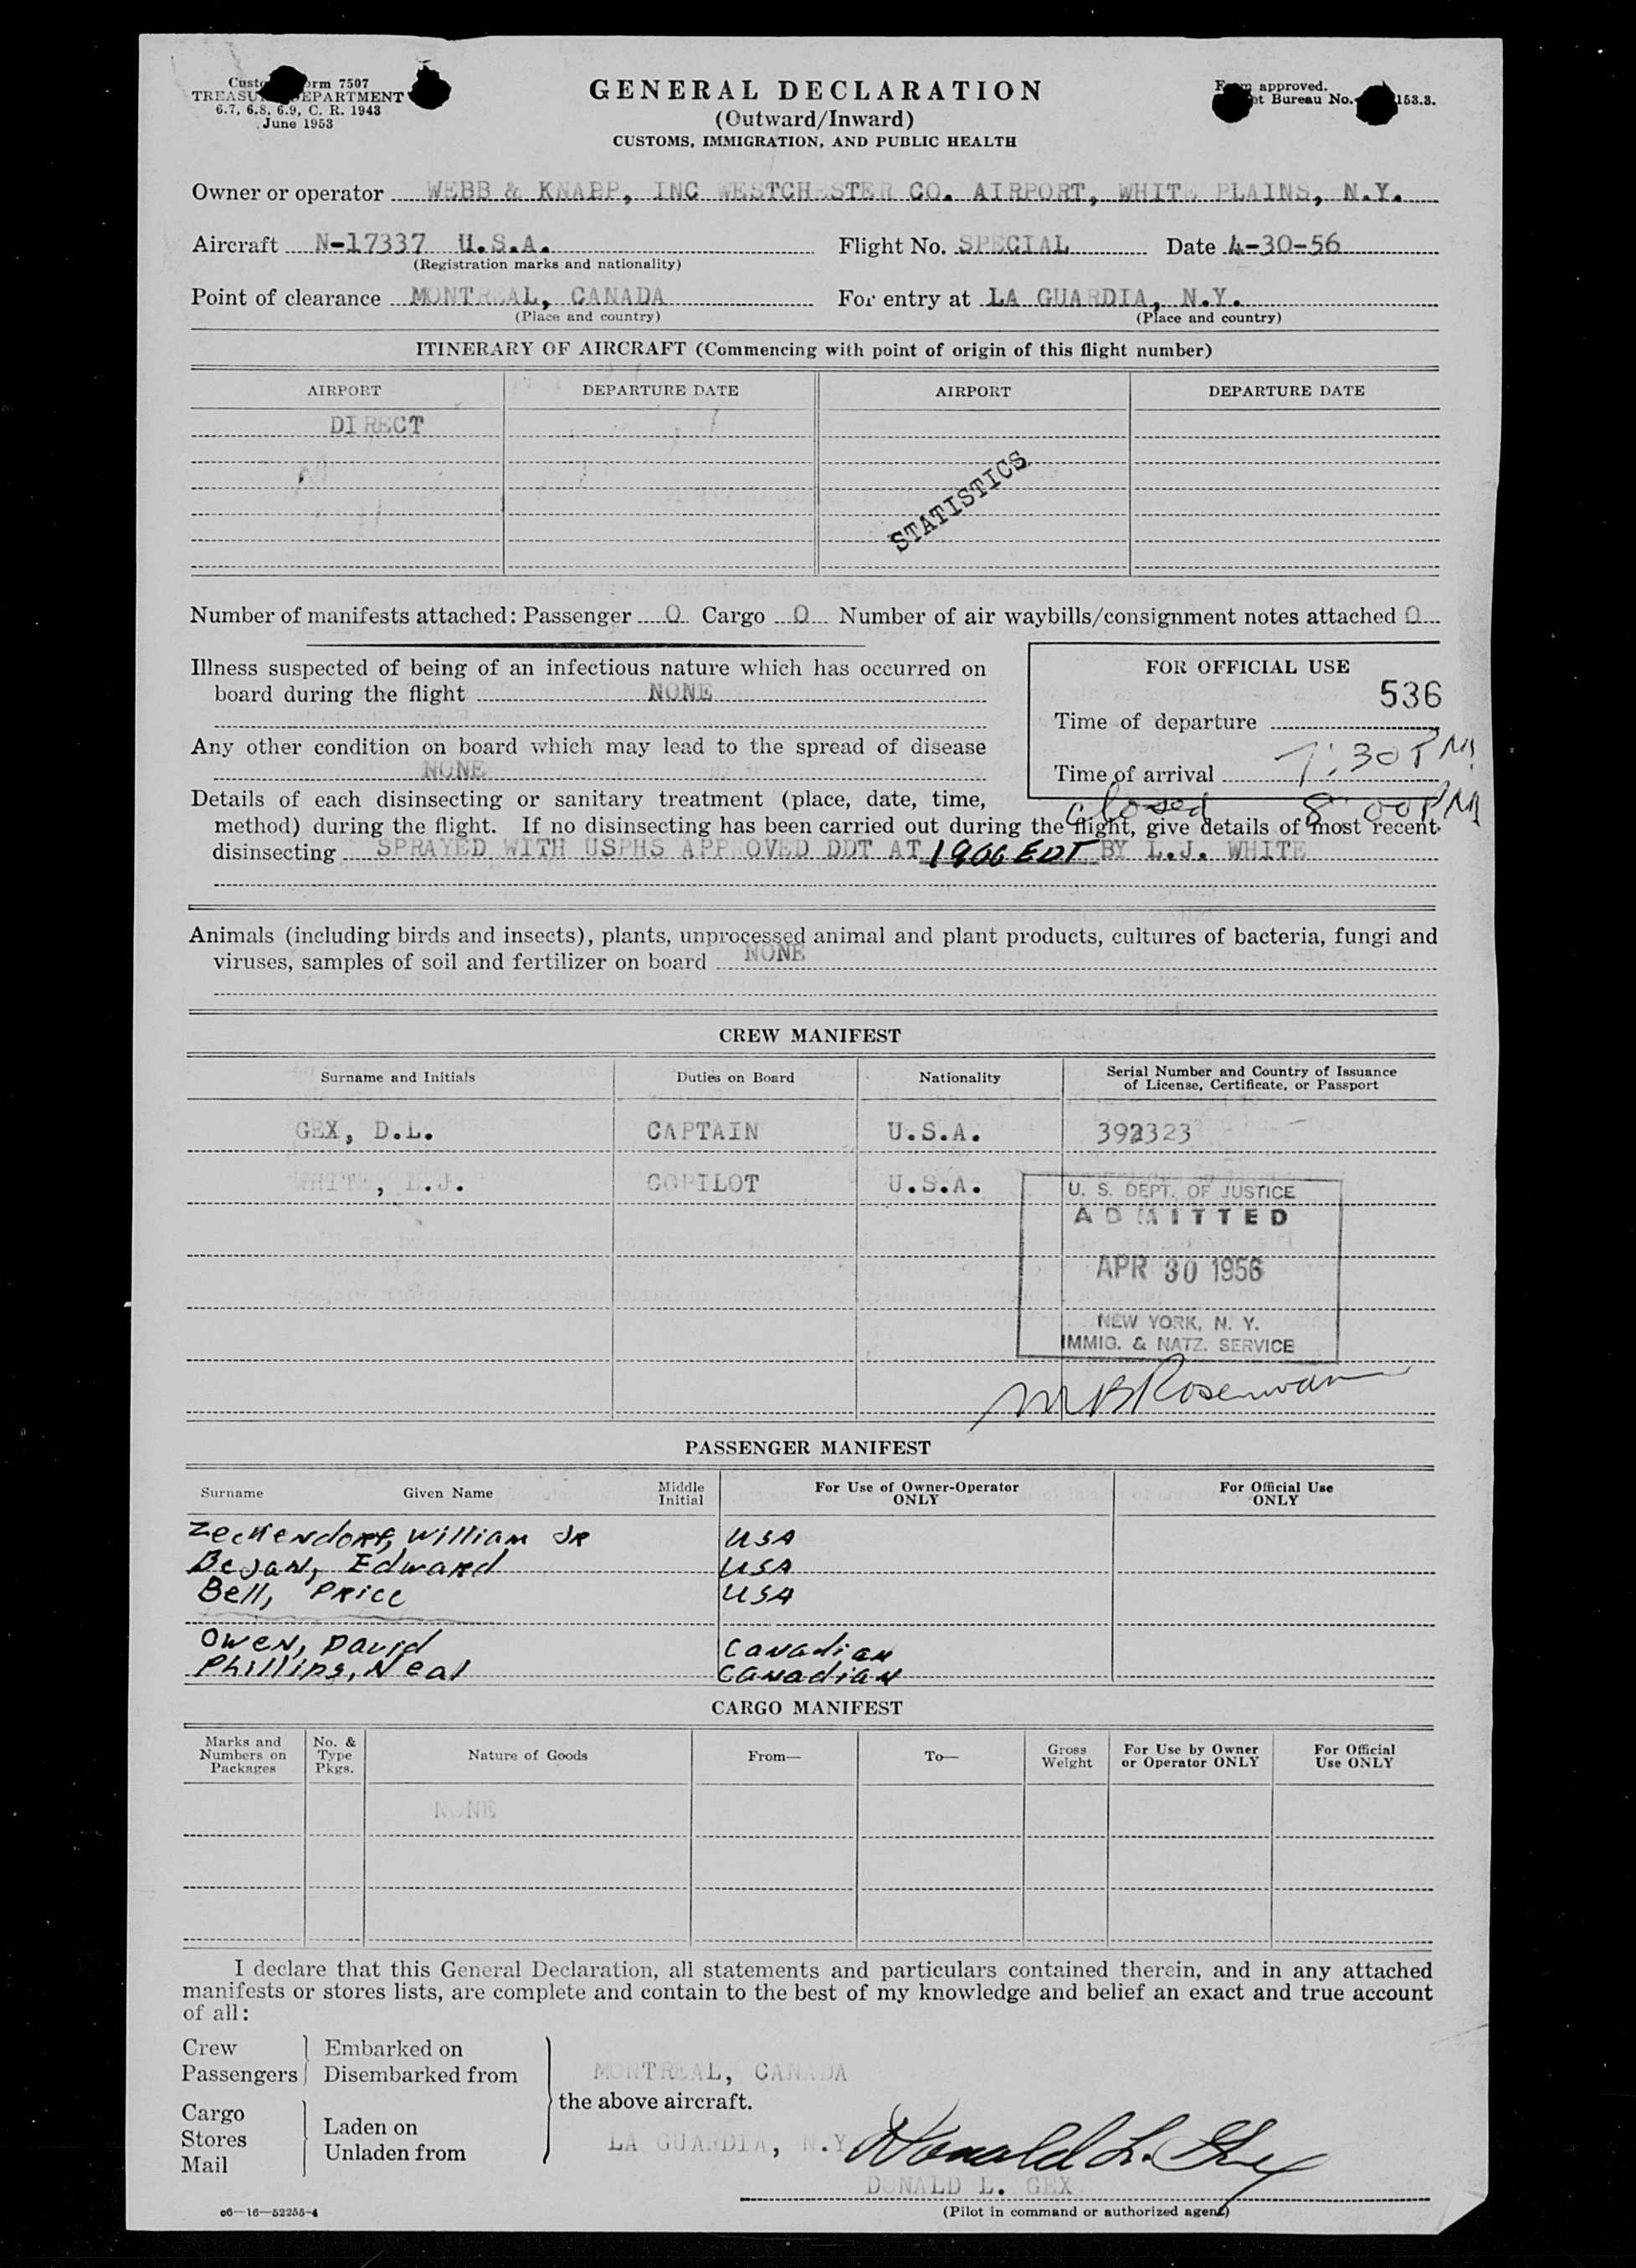 Form 7507
TREASURY DEPARTMENT
6.7, 6.8, 6.9, C. R. 1943
June 1953
GENERAL DECLARATION
(Outward/Inward)
CUSTOMS, IMMIGRATION, AND PUBLIC HEALTH
Form approved.
Bureau No. 153.3.
Owner or operator WEBB & KNAPP, INC WESTCHESTER CO. AIRPORT, WHITE PLAINS, N.Y.
Aircraft N-17337 U.S.A. Flight No. SPECIAL Date 4-30-56
(Registration marks and nationality)
Point of clearance MONTREAL, CANADA For entry at LA GUARDIA, N.Y.
(Place and country) (Place and country)
ITINERARY OF AIRCRAFT (Commencing with point of origin of this flight number)
AIRPORT DEPARTURE DATE AIRPORT DEPARTURE DATE
DIRECT
STATISTICS
Number of manifests attached: Passenger 0 Cargo 0 Number of air waybills/consignment notes attached 0
Illness suspected of being of an infectious nature which has occurred on
board during the flight NONE
Any other condition on board which may lead to the spread of disease
NONE
FOR OFFICIAL USE
536
Time of departure
Time of arrival 7:30 PM
closed 8:00 PM
Details of each disinsecting or sanitary treatment (place, date, time,
method) during the flight. If no disinsecting has been carried out during the flight, give details of most recent
disinsecting SPRAYED WITH USPHS APPROVED DDT AT 1906 EDT BY L.J. WHITE
Animals (including birds and insects), plants, unprocessed animal and plant products, cultures of bacteria, fungi and
viruses, samples of soil and fertilizer on board NONE
CREW MANIFEST
Surname and Initials Duties on Board Nationality Serial Number and Country of Issuance
of License, Certificate, or Passport
GEX, D.L. CAPTAIN U.S.A. 392323
WHITE, L.J. COPILOT U.S.A.
U. S. DEPT. OF JUSTICE
ADMITTED
APR 30 1956
NEW YORK, N. Y.
IMMIG. & NATZ. SERVICE
PASSENGER MANIFEST
Surname Given Name Middle Initial For Use of Owner-Operator ONLY For Official Use ONLY
Zeckendorf, William JR USA
Bejan, Edward USA
Bell, Price USA
Owen, David Canadian
Phillips, Neal Canadian
CARGO MANIFEST
Marks and Numbers on Packages No. & Type Pkgs. Nature of Goods From— To— Gross Weight For Use by Owner or Operator ONLY For Official Use ONLY
NONE
I declare that this General Declaration, all statements and particulars contained therein, and in any attached
manifests or stores lists, are complete and contain to the best of my knowledge and belief an exact and true account
of all:
Crew Embarked on
Passengers Disembarked from MONTREAL, CANADA
the above aircraft.
Cargo
Stores Laden on
Mail Unladen from LA GUARDIA, N.Y.
Donald L. Gex
DONALD L. GEX
(Pilot in command or authorized agent)
c6—16—52255-4